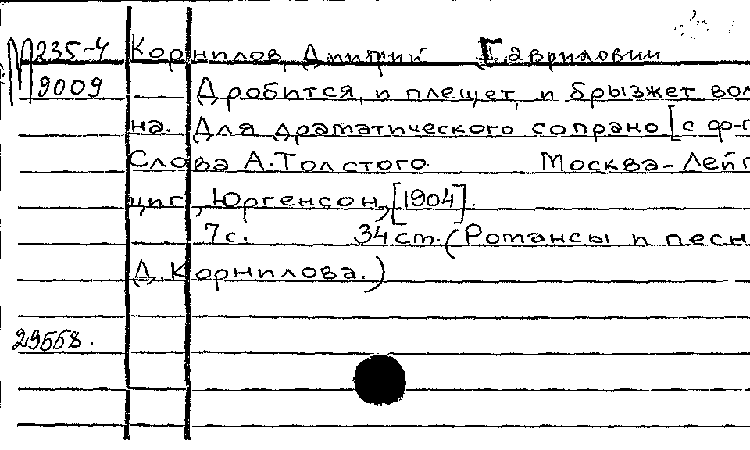 М 235-4 Корнилов, Дмитрий Гаврилович
9009 Дробится, и плещет, и брызжет вол
на. Для драматического сопрано [с ф-п
Слова А.Толстого. Москва-Лейп
циг, Юргенсон, [1904].
7с. 34 cm. (Романсы и песн
Д. Корнилова.)
29558.